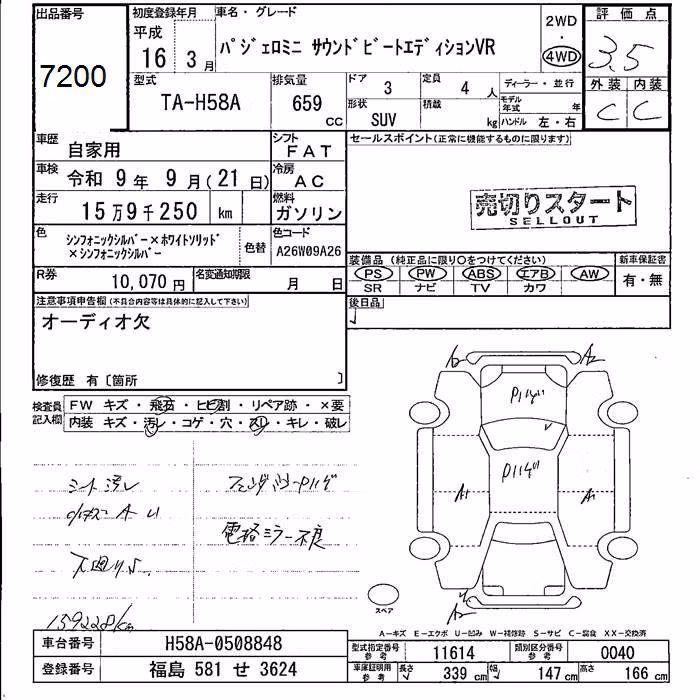 出品番号
7200
初度登録年月
平成
16 3 月
車名・グレード
パジェロミニ サウンドビートエディションVR
2WD
・
4WD
評価点
3.5
外装 内装
C C
型式
TA-H58A
排気量
659 cc
ドア
3
定員
4 人
形状
SUV
積載
kg
ディーラー・並行
モデル年式 年
ハンドル 左・右
車歴
自家用
シフト
FAT
車検
令和 9年 9月(21日)
冷房
AC
走行
15万9千250 km
燃料
ガソリン
色
シンフォニックシルバー×ホワイトソリッド
×シンフォニックシルバー
色替
色コード
A26W09A26
R券
10,070円
名変通知期限
月 日
セールスポイント(正常に機能するものに限ります)
売切りスタート
SELLOUT
装備品(純正品に限り○をつけてください)
PS PW ABS エアB AW
SR ナビ TV カワ
新車保証書
有・無
後日品
注意事項申告欄(不具合内容等は具体的に記入して下さい)
オーディオ欠
修復歴 有〔箇所 〕
検査員記入欄
FW キズ・飛石・ヒビ割・リペア跡・×要
内装 キズ・汚レ・コゲ・穴・スレ・キレ・破レ
シート汚レ
下廻りS
電格ミラー不良
159228km
A2
A1
A1
A2
スペア
A-キズ E-エクボ U-凹み W-補修跡 S-サビ C-腐食 XX-交換済
車台番号
H58A-0508848
登録番号
福島 581 せ 3624
型式指定番号
参考
11614
類別区分番号
参考
0040
車庫証明用
参考
長さ
339 cm
幅
147 cm
高さ
166 cm